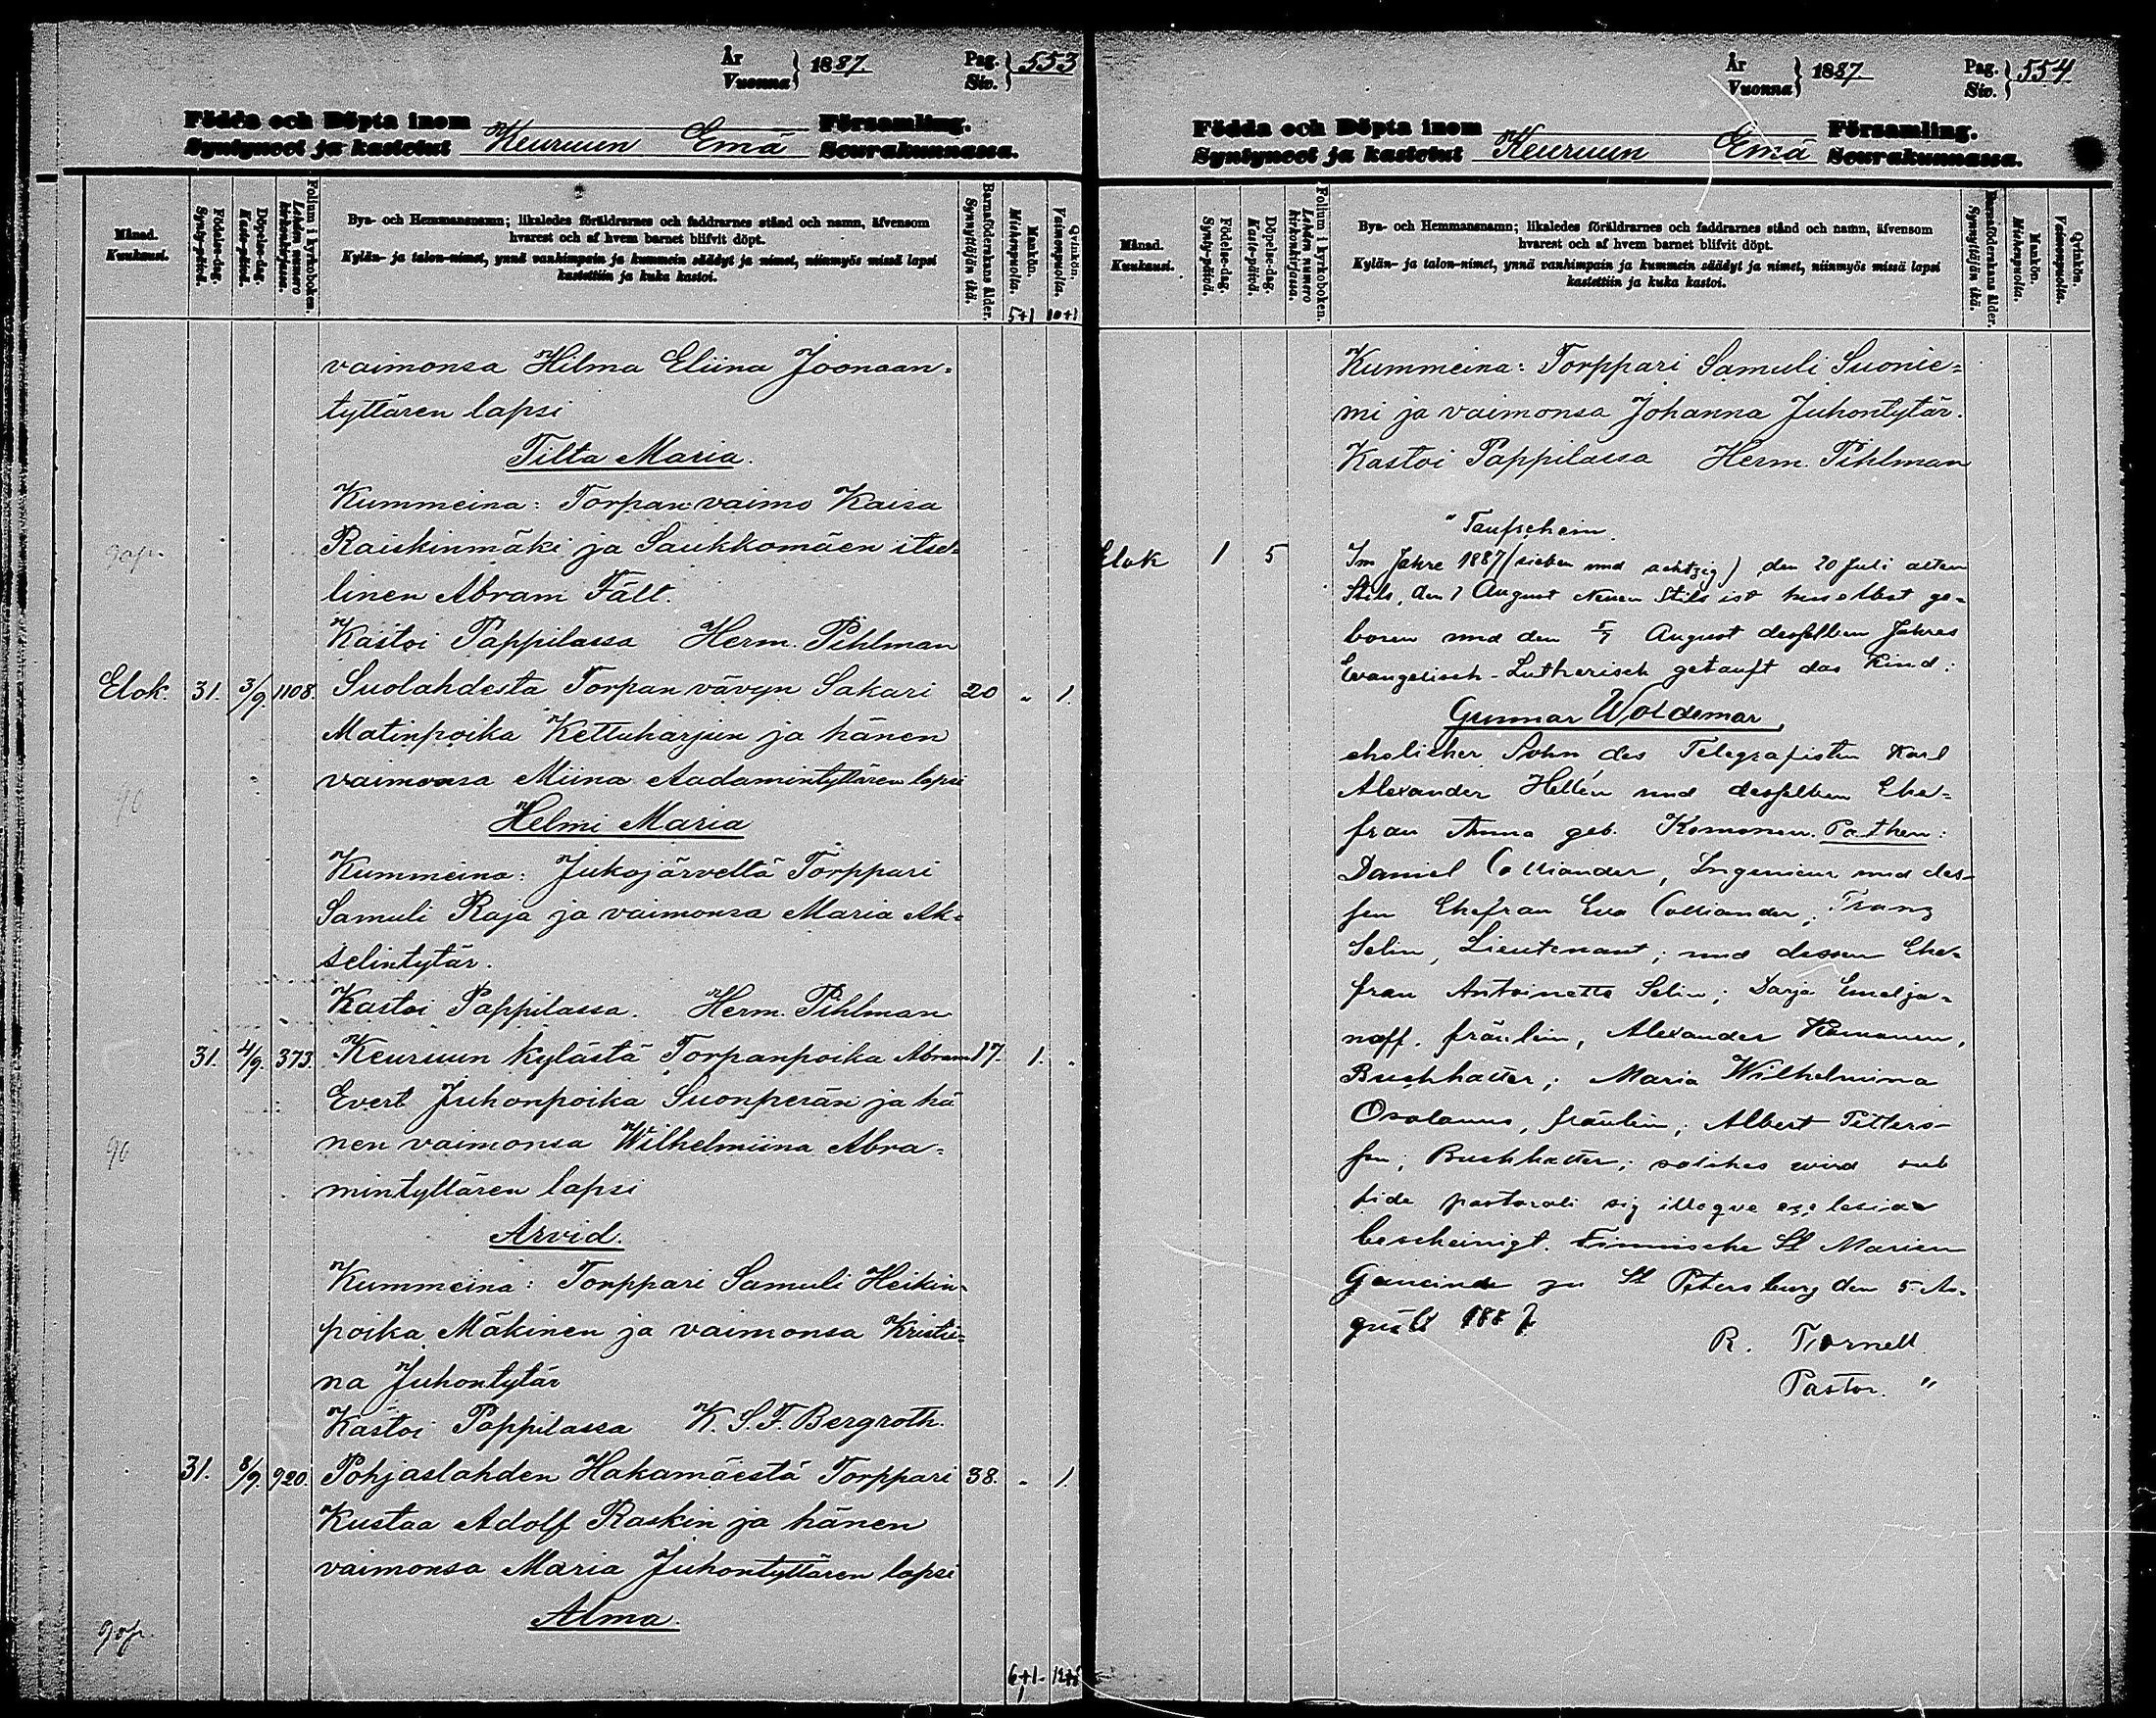 År
Vuonna } 1887.
Pag.
Siv. } 553
Födda och Döpta inom
Syntyneet ja kastetut Keuruun Emä
Församling.
Seurakunnassa.
Månad.
Kuukausi.
Födelse-dag.
Synty-päivä.
Döpelse-dag.
Kaste-päivä.
Folium i kyrkoboken.
Lehden numero
kirkonkirjassa.
Bya- och Hemmansnamn; likaledes föräldrarnes och faddrarnes stånd och namn, äfvensom
hvarest och af hvem barnet blifvit döpt.
Kylän- ja talon-nimet, ynnä vanhimpain ja kummein säädyt ja nimet, niinmyös missä lapsi
kastettiin ja kuka kastoi.
Barnaföderskans ålder.
Synnyttäjän ikä.
Mankön.
Miehenpuolia.
Qvinkön.
Vaimonpuolia.
5+1 10+1
vaimonsa Hilma Eliina Joonaan-
tyttären lapsi
Tilta Maria.
Kummeina: Torpan vaimo Kaisa
Raiskinmäki ja Saukkomäen itsel-
linen Abram Fält.
Kastoi Pappilassa Herm. Pihlman
Elok. 31. 3/9. 1108. Suolahdesta Torpan vävyn Sakari 20 " 1.
Matinpoika Kettuharjun ja hänen
vaimonsa Miina Aadamintyttären lapsi
90
Helmi Maria
Kummeina: Jukojärveltä Torppari
Samuli Raja ja vaimonsa Maria Ak-
selintytär.
Kastoi Pappilassa. Herm. Pihlman
31. 4/9. 373. Keuruun kylästä Torpanpoika Abram 17. 1. "
Evert Juhonpoika Suonperän ja hä
nen vaimonsa Wilhelmiina Abra-
90
mintyttären lapsi
Arvid.
Kummeina: Torppari Samuli Heikin-
poika Mäkinen ja vaimonsa Kristii-
na Juhontytär
Kastoi Pappilassa K. S. F. Bergroth.
31. 8/9. 920. Pohjaslahden Hakamäestä Torppari 38. " 1.
Kustaa Adolf Raskin ja hänen
vaimonsa Maria Juhontyttären lapsi
Alma.
6+1-
År
Vuonna } 1887
Pag.
Siv. } 554
Födda och Döpta inom
Syntyneet ja kastetut Keuruun Emä
Församling.
Seurakunnassa.
Månad.
Kuukausi.
Födelse-dag.
Synty-päivä.
Döpelse-dag.
Kaste-päivä.
Folium i kyrkoboken.
Lehden numero
kirkonkirjassa.
Bya- och Hemmansnamn; likaledes föräldrarnes och faddrarnes stånd och namn, äfvensom
hvarest och af hvem barnet blifvit döpt.
Kylän- ja talon-nimet, ynnä vanhimpain ja kummein säädyt ja nimet, niinmyös missä lapsi
kastettiin ja kuka kastoi.
Barnaföderskans ålder.
Synnyttäjän ikä.
Mankön.
Miehenpuolia.
Qvinkön.
Vaimonpuolia.
Kummeina: Torppari Samuli Suonie-
mi ja vaimonsa Johanna Juhontytär.
Kastoi Pappilassa Herm. Pihlman
"Taufschein.
Elok 1 5 Im Jahre 1887 (sieben und achtzig) den 20 Juli alten
Stils, den 1 August Neuen Stils ist hieselbst ge-
boren und den August desselben Jahres
Evangelisch-Lutherisch getauft das Kind:
Gunnar Woldemar,
ehelicher Sohn des Telegrafisten Karl
Alexander Hellén und desselben Ehe-
frau Anna geb. Komonen. Pathen:
Daniel Colliander, Ingenieur und des-
sen Ehefrau Eva Colliander; Franz
Selin, Lieutenant; und dessen Ehe-
frau Antoinette Selin; Darja Emelja-
noff, fräulein, Alexander
Buchhalter; Maria Wilhelmina
Osolanus, fräulein; Albert Petters-
sen; Buchhalter; solches wird sub
fide pastorali
bescheinigt. Finnische St Marien
Gemeinde zu St Petersburg den 5 Au-
gust 1887
R. Tornell
Pastor."